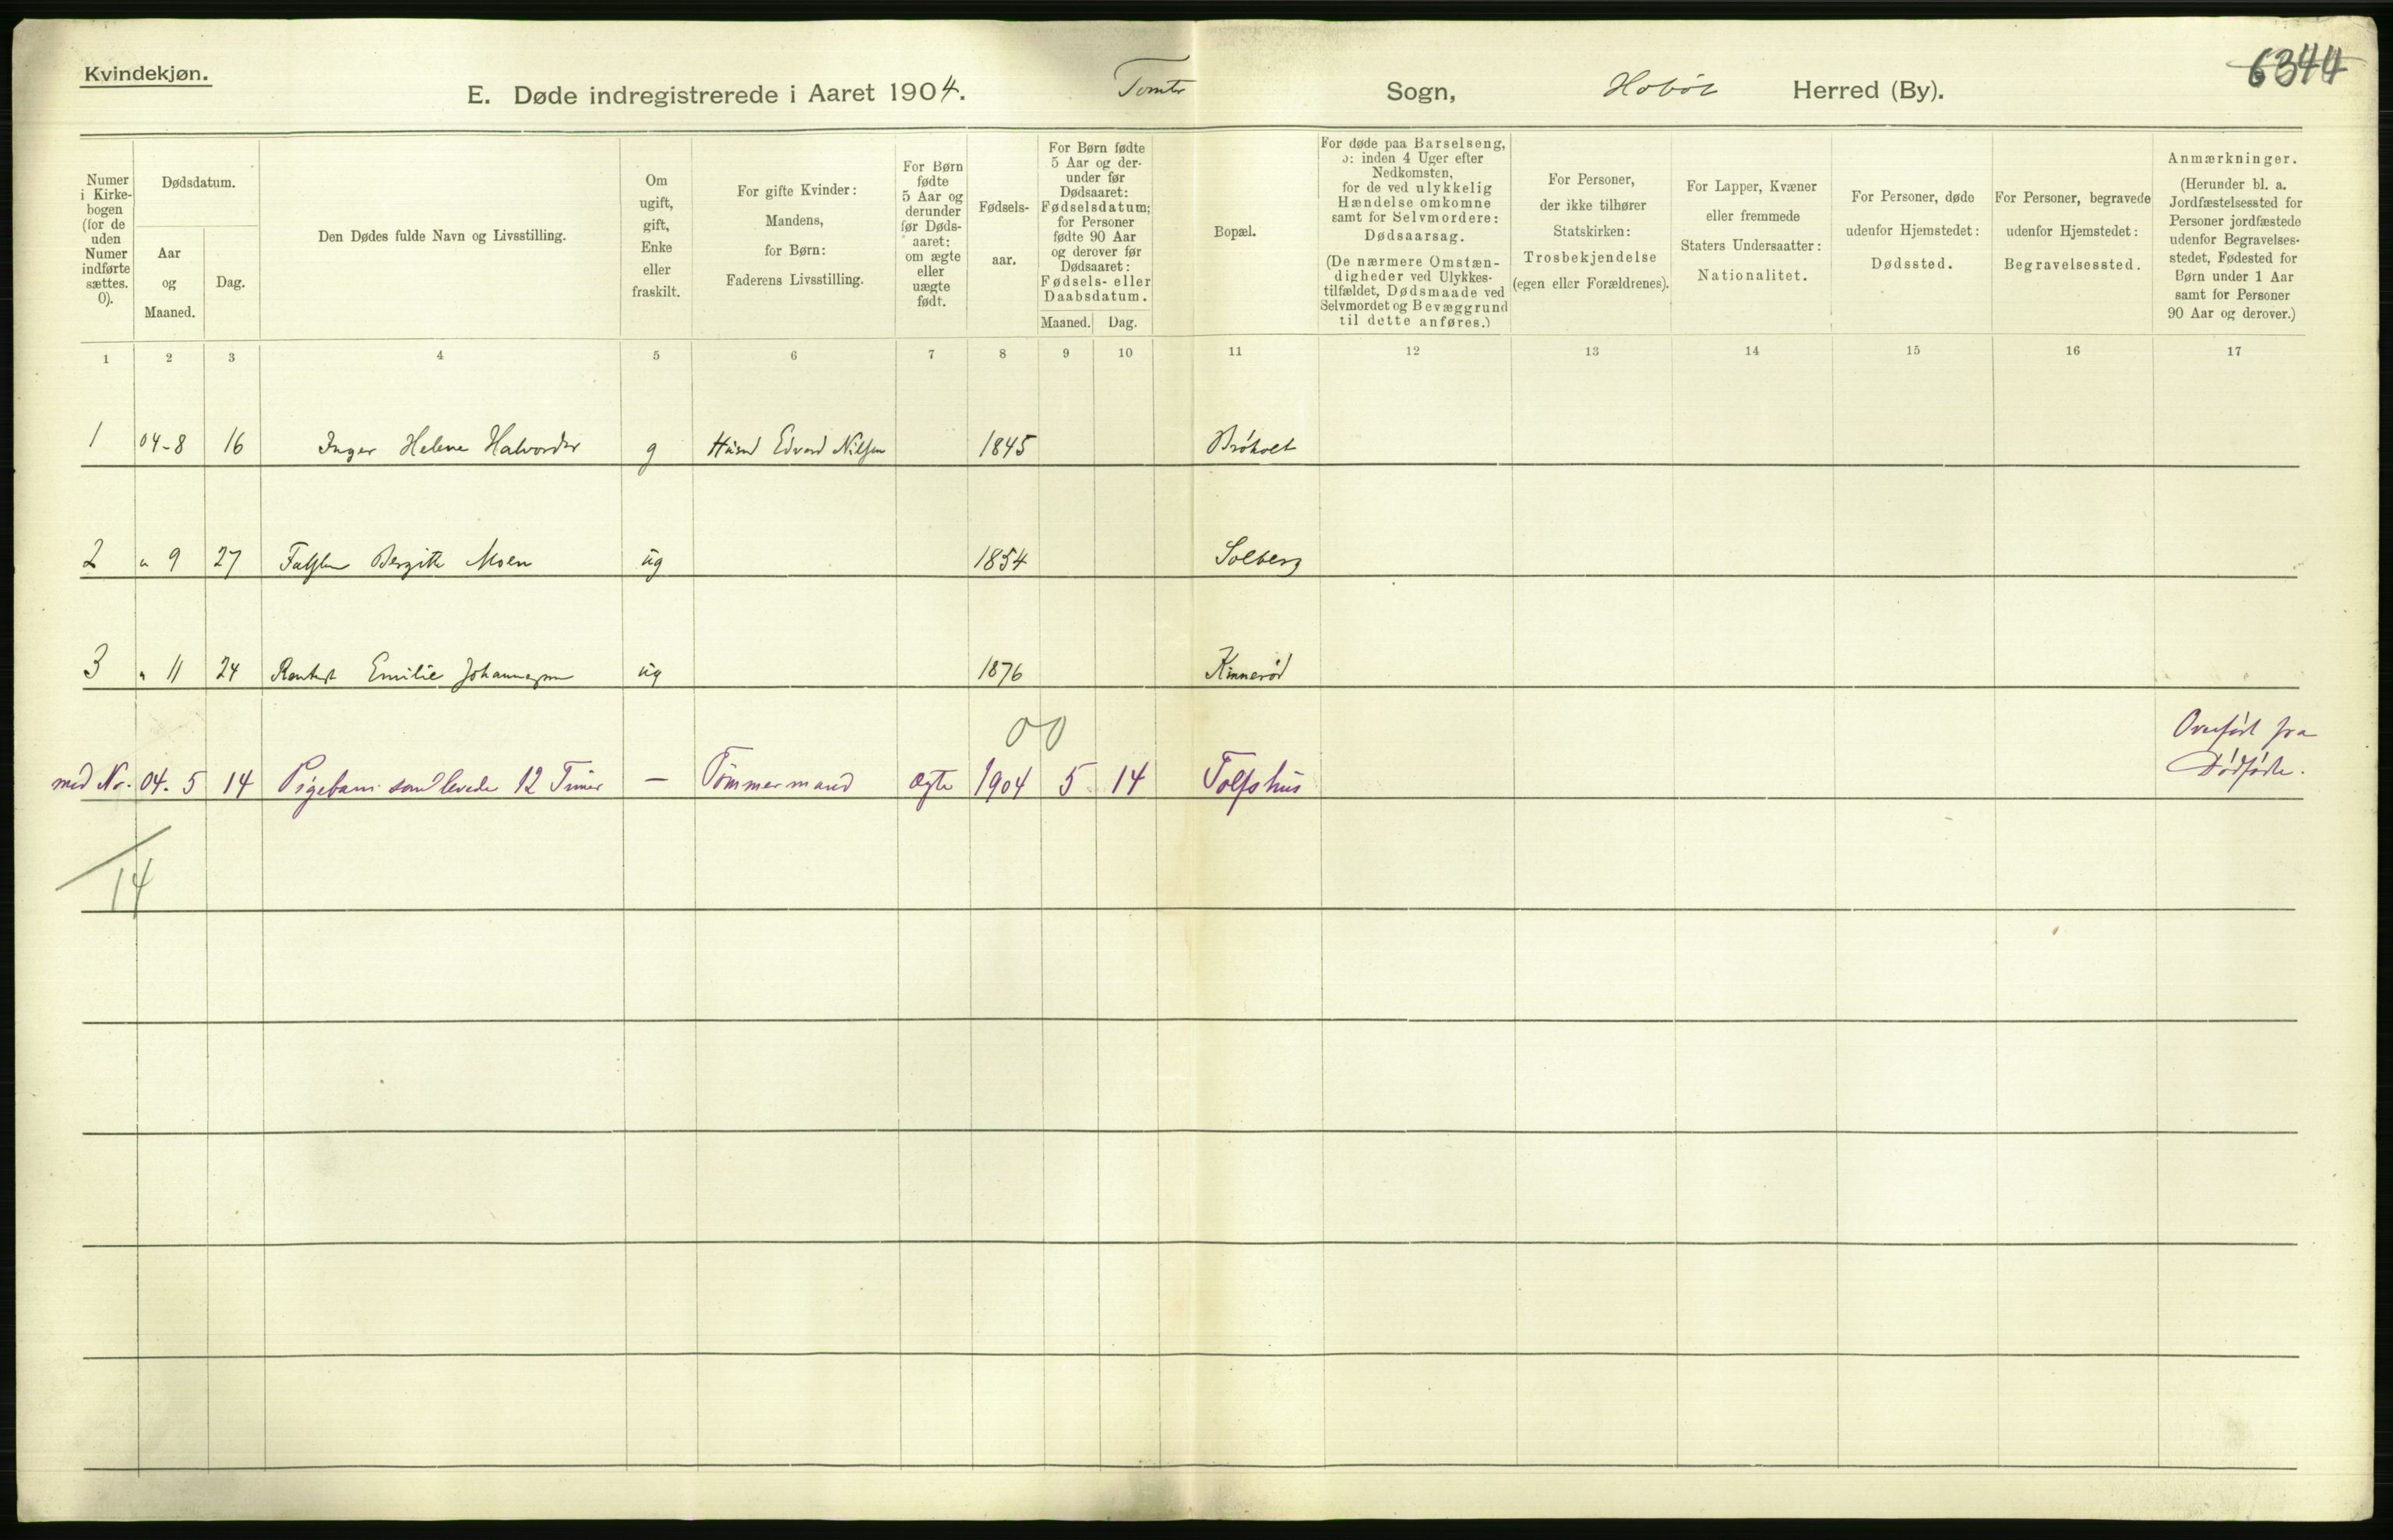 Kvindekjøn.
E. Døde indregistrerede i Aaret 1904. Tomter Sogn, Hobøl Herred (By).
6344
Numer i Kirke-bogen (for de uden Numer indførte sættes. 0).
Dødsdatum.
Aar og Maaned.
Dag.
Den Dødes fulde Navn og Livsstilling.
Om ugift, gift, Enke eller fraskilt.
For gifte Kvinder: Mandens, for Børn: Faderens Livsstilling.
For Børn fødte 5 Aar og derunder før Døds-aaret: om ægte eller uægte født.
Fødsels-aar.
For Børn fødte 5 Aar og der-under før Dødsaaret: Fødselsdatum; for Personer fødte 90 Aar og derover før Dødsaaret: Fødsels- eller Daabsdatum.
Maaned. Dag.
Bopæl.
For døde paa Barselseng, ɔ: inden 4 Uger efter Nedkomsten, for de ved ulykkelig Hændelse omkomne samt for Selvmordere: Dødsaarsag. (De nærmere Omstæn-digheder ved Ulykkes-tilfældet, Dødsmaade ved Selvmordet og Bevæggrund til dette anføres.)
For Personer, der ikke tilhører Statskirken: Trosbekjendelse (egen eller Forældrenes).
For Lapper, Kvæner eller fremmede Staters Undersaatter: Nationalitet.
For Personer, døde udenfor Hjemstedet: Dødssted.
For Personer, begravede udenfor Hjemstedet: Begravelsessted.
Anmærkninger. (Herunder bl. a. Jordfæstelsessted for Personer jordfæstede udenfor Begravelses-stedet, Fødested for Børn under 1 Aar samt for Personer 90 Aar og derover.)
1 2 3 4 5 6 7 8 9 10 11 12 13 14 15 16 17
1 04-8 16 Inger Helene Halvorsdtr g Husmd Edvard Nilsen 1845 Bröholt
2 " 9 27 Bergitte Moen ug 1854 Solberg
3 " 11 24 Emilie Johannesen ug 1876 Kinneröd
00
Overført fra
Dødfødte.
med Nr. 04. 5 14 Pigebarn som levede 12 Timer — Tömmermand ægte 1904 5 14 Tolfshus
14